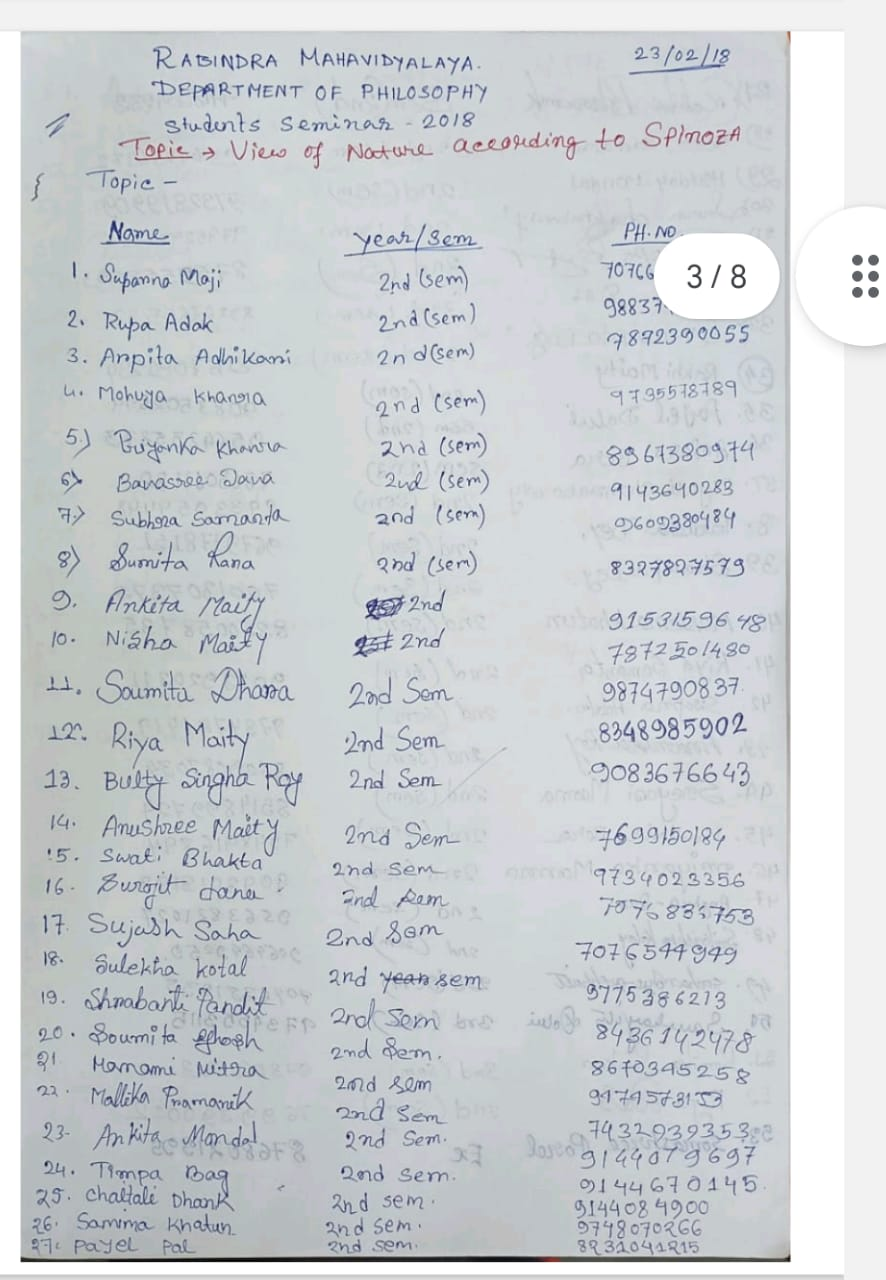 RABINDRA MAHAVIDYALAYA. 23/02/18
DEPARTMENT OF PHILOSOPHY
Students Seminar - 2018
Topic → View of Nature according to SPINOZA
Topic -
Name year/sem PH. NO.
3 / 8
1. Suparna Maji 2nd (sem) 70766
2. Rupa Adak 2nd (sem) 98837
3. Arpita Adhikari 2nd (sem) 7892390055
4. Mohuya Khanra 2nd (sem) 9735578789
5.) Priyanka Khanra 2nd (sem) 8967380974
6) Banasree Jana 2nd (sem) 9143640283
7.) Subhra Samanta 2nd (sem) 9609380484
8) Sumita Rana 2nd (sem) 8327827579
9. Ankita Maity 2nd
10. Nisha Maity 2nd 9153159648
7872501480
11. Soumita Dhara 2nd Sem 9874790837.
12. Riya Maity 2nd Sem 8348985902
13. Bulty Singha Roy 2nd Sem 9083676643
14. Anushree Maity 2nd Sem 7699150184
15. Swati Bhakta 2nd sem 9734023356
16. Jana 2nd Sem
17. Sujash Saha 2nd Sem 7076544949
18. Sulekha Kotal 2nd year sem 9775386213
19. Shrabanti Pandit 2nd Sem
20. Soumita Ghosh 2nd Sem. 8436142478
21. Mamami Mitra 2nd Sem 8670345258
22. Mallika Pramanik 2nd Sem
23. Ankita Mondal 2nd Sem. 7432939353
24. Timpa Bag 2nd Sem. 9144079697
25. Chaitali Dhank 2nd sem. 9144670145.
26. Samima Khatun 2nd Sem. 9144084900
27. Payel Pal 2nd Sem. 9748070266
8231041215